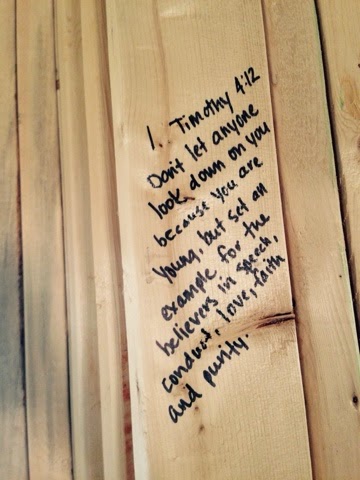 1. Timothy 4:12
Don't let anyone
look down on you
because you are
young, but set an
example for the
believers in speech,
conduct, love, faith
and purity.